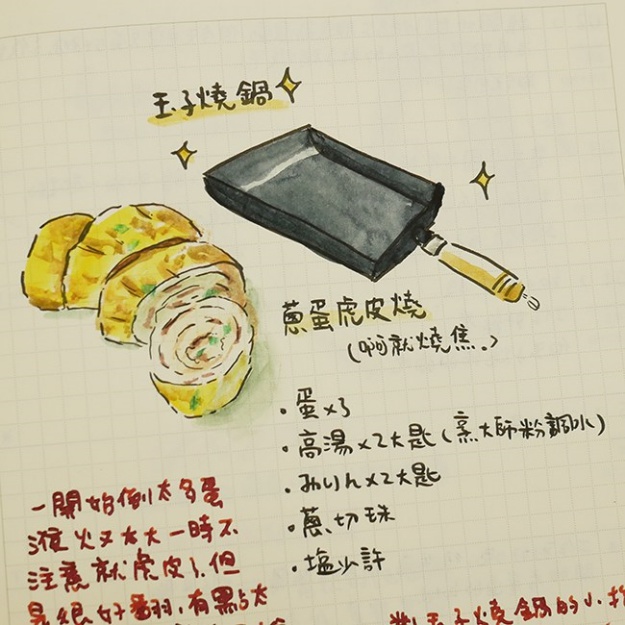 玉子燒鍋
蔥蛋虎皮燒
(啊就燒焦。)
・蛋x3
・高湯x2大匙(烹大師粉調水)
・みりんx2大匙
・蔥切珠
・塩少許
一開始倒太多蛋
液火又太大一時不
注意就虎皮了,但
是很好翻,有黑占太
對玉子燒鍋的小